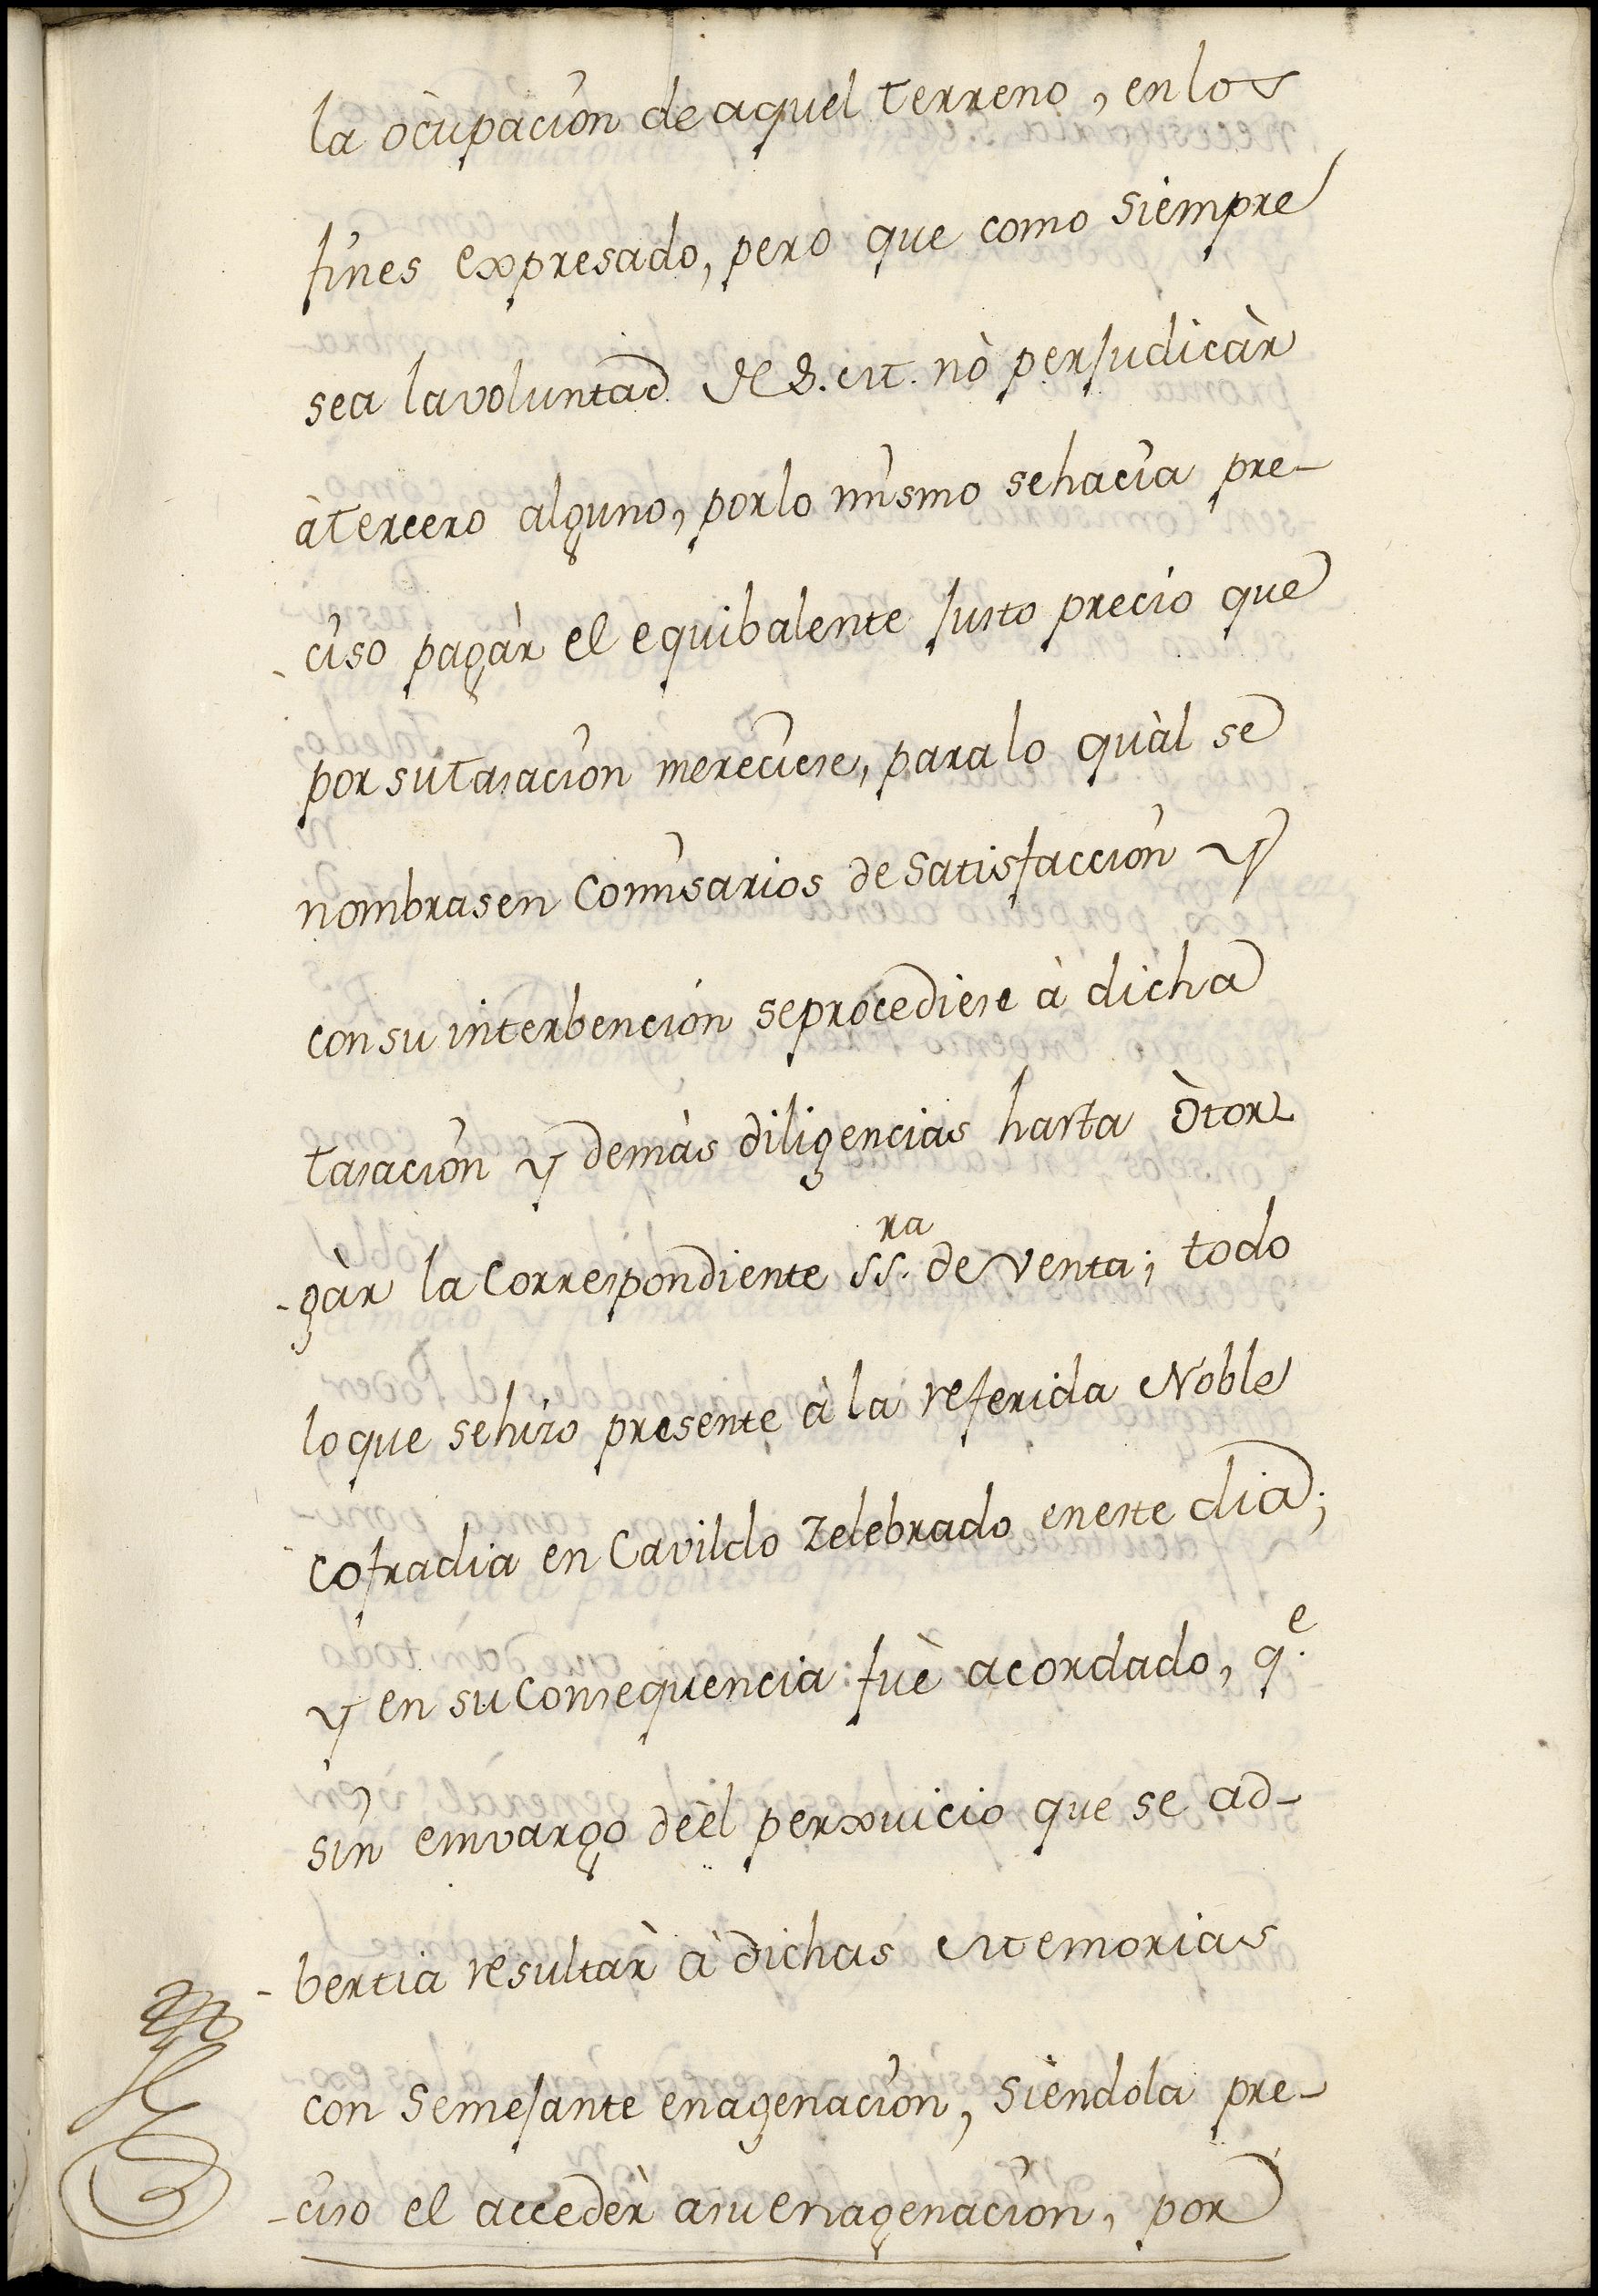 la òcupación de aquel terreno, en los
fines expresado, pero que como siempre
sea la voluntad de S. M. nò perjudicàr
à tercero alguno, por lo mismo se hacia pre-
-ciso pagàr el equibalente justo precio que
por su tasación mereciese, para lo quàl se
nombrasen Comisarios de satisfacción y
con su interbención se procediese à dicha
tasación y demàs diligencias hasta òtor-
-gàr la correspondiente ss.ra de venta; todo
lo que se hizo presente à la referida Noble
cofradia en Cavildo zelebrado en este dia;
y en su consequencia fuè acordado, q.e
sin emvargo deèl perxuicio que se ad-
-bertia resultàr à dichas Memorias
con semejante enagenación, sièndola pre-
-ciso el accedèr a su enagenación, por